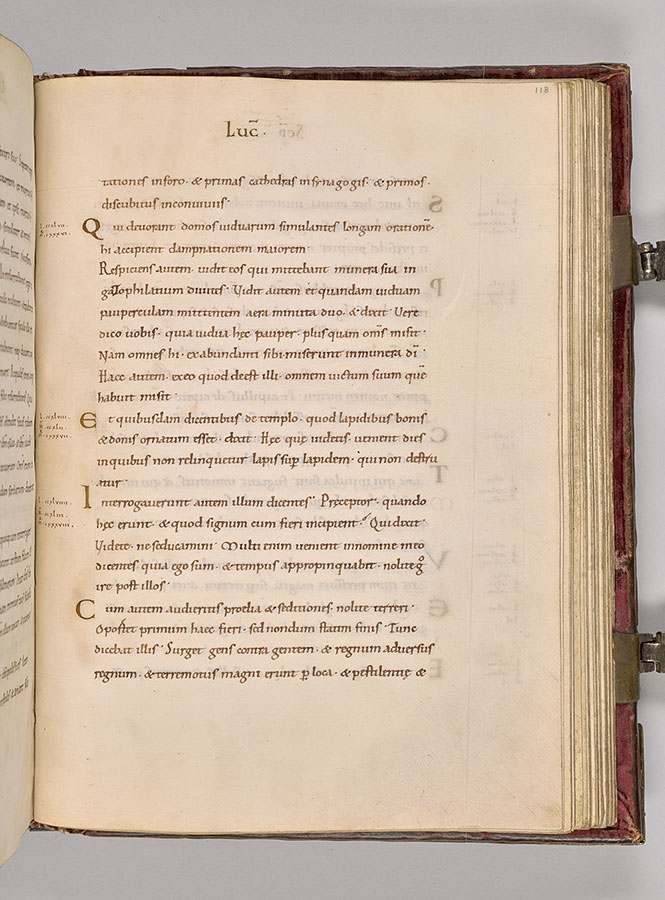 118
Luc̄ ·
tationes inforo · & primas cathedras insynagogis · & primos ·
discubitus inconuiuiis ·
Qui deuorant domos uiduarum simulantes longam orationē ·
hi accipient dampnationem maiorem
Respiciens autem · uidit eos qui mittebant munera sua in
gazophilatium diuites · Vidit autem et quandam uiduam
pauperculam mittentem aera minuta duo · & dixit · Vere
dico uobis · quia uidua hęc pauper · plus quam om̄s misit ·
Nam omnes hi · exabundanti sibi miserunt inmunera dī ·
Haec autem · exeo quod deest illi · omnem uictum suum quē
habuit misit ·
Et quibusdam dicentibus de templo · quod lapidibus bonis
& donis ornatum esset · dixit · Hęc quę uidetis · uenient dies
inquibus non relinquetur lapis sup̄ lapidem · qui non destru
atur ·
Interrogauerunt autem illum dicentes · Pręceptor · quando
hęc erunt · & quod signum cum fieri incipient · Qui dixit ·
Videte · ne seducamini · Multi enim uenient innomine meo
dicentes quia ego sum · & tempus appropinquabit · nolite g̊
ire post illos ·
Cum autem audieritis proelia & seditiones · nolite terreri ·
Oportet primum haec fieri · sed nondum statim finis · Tunc
dicebat illis · Surget gens contra gentem · & regnum aduersus
regnum · & terremotus magni erunt p̱ loca · & pestilentię &